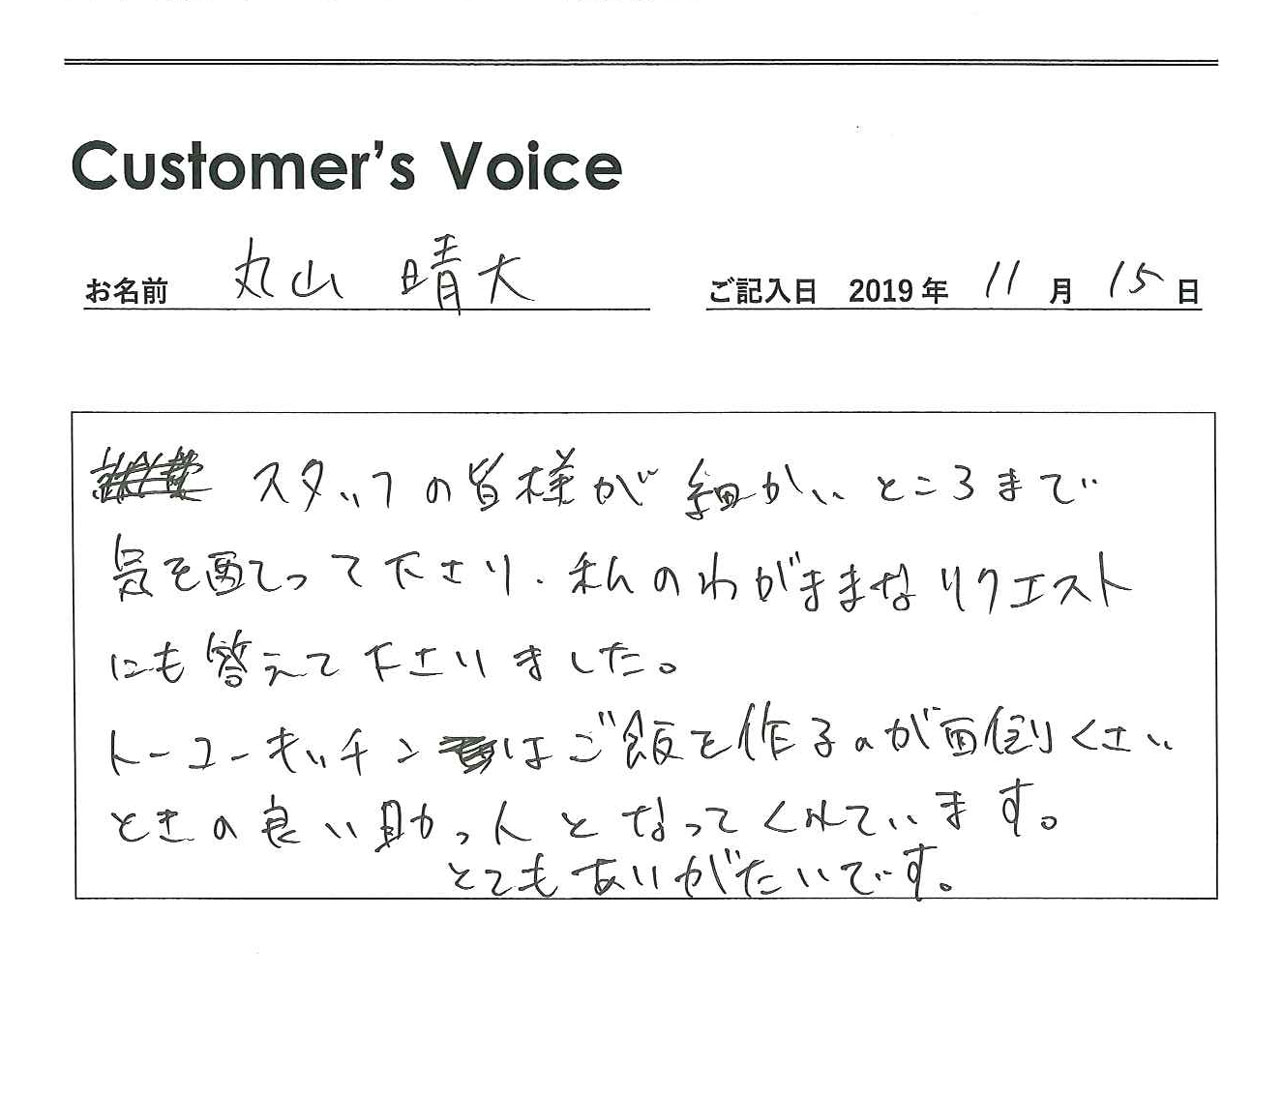 Customer's Voice
お名前 丸山 晴大 ご記入日 2019年 11月 15日
スタッフの皆様が細かいところまで
気を配って下さり、私のわがままなリクエスト
にも答えて下さりました。
トーコーキッチンはご飯を作るのが面倒くさい
ときの良い助っ人となってくれています。
とてもありがたいです。